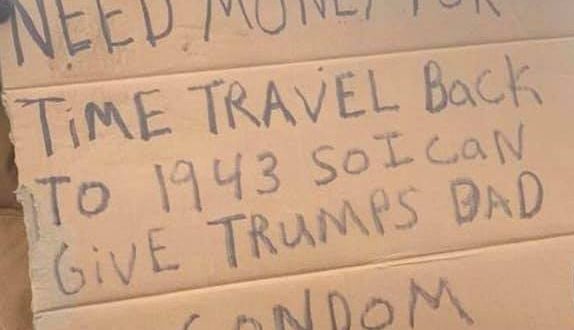 NEED MONEY FOR
TiME TRAVEL Back
TO 1943 SO I CaN
GiVE TRUMPS DAD
CONDOM